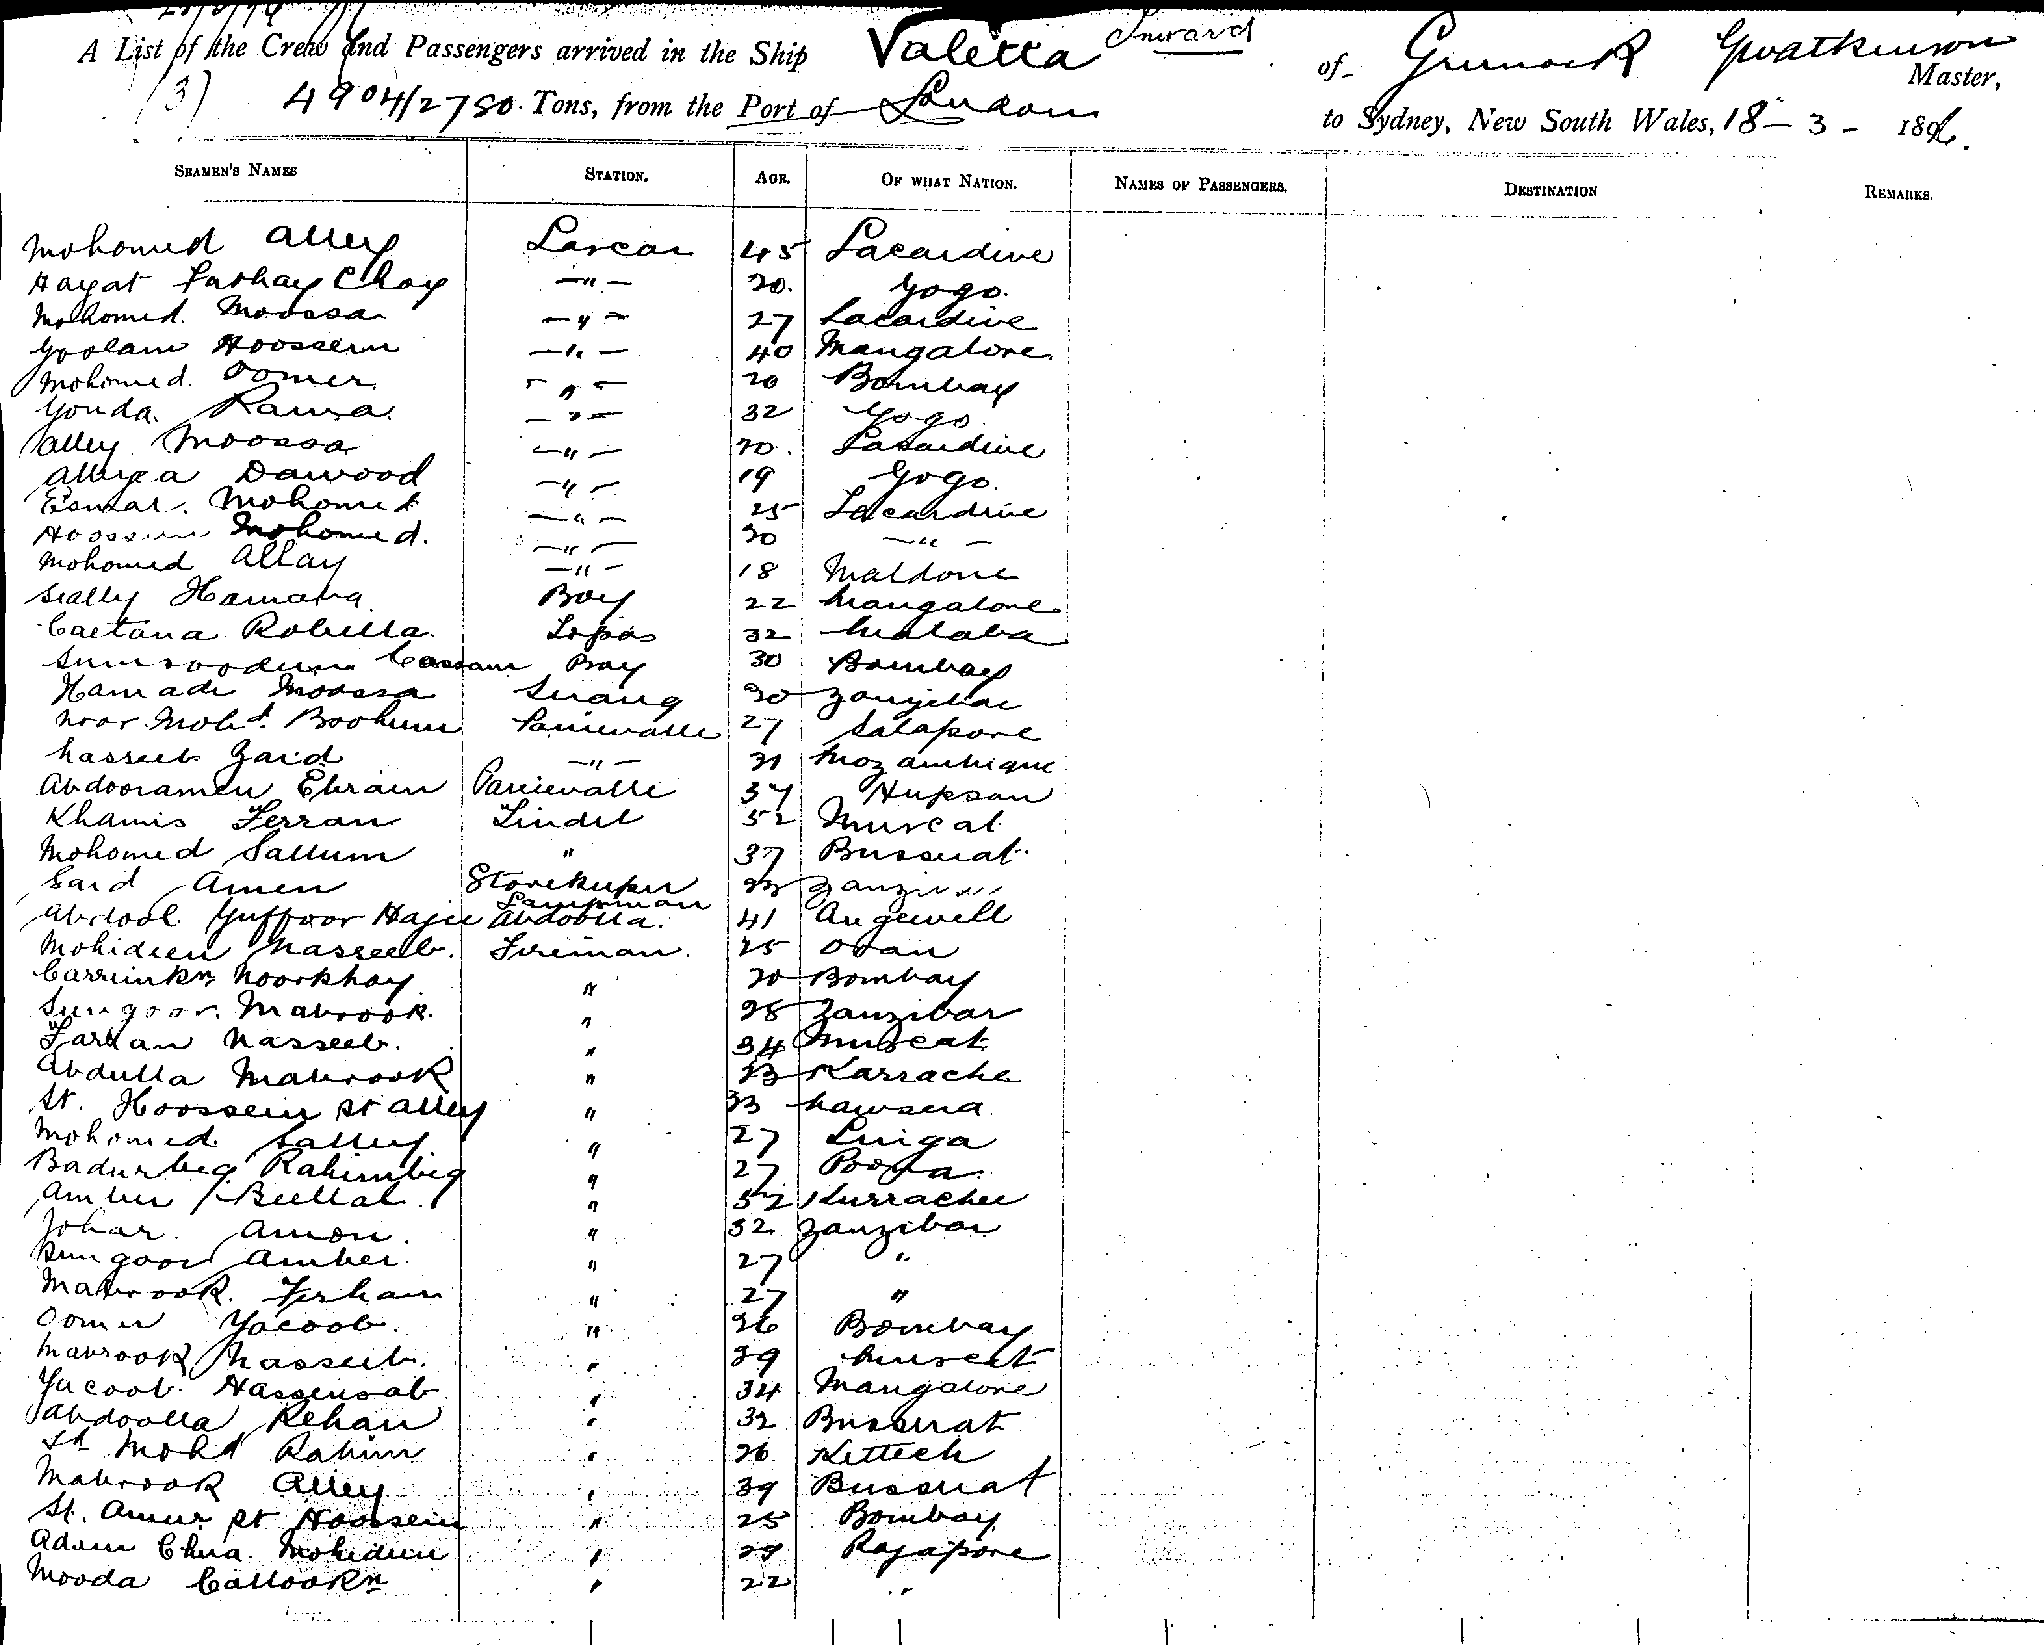 A List of the Crew and Passengers arrived in the Ship Valetta Inward of Greenock Gwatkinson Master,
(3) 4904/2780 Tons, from the Port of London to Sydney, New South Wales, 18 - 3 - 1896.
SEAMEN'S NAMES STATION. AGE. OF WHAT NATION. NAMES OF PASSENGERS. DESTINATION REMARKS.
Mohomed Alley Lascar 45 Lacardive
Hayat Choy —"— 20. Gogo.
Mohomed. Moossa —"— 27 Lacardive
Goolam Hoossein —"— 40 Mangalore.
Mohomed. Oomer. —"— 20 Bombay
Gonda. Rama. —"— 32 Gogo
Alley Moossa —"— 20. Lacardive
Dawood —"— 19 Gogo.
Esmal. Mohomed —"— 25 Lacardive
Hoossein Mohomed. —"— 30 —"—
Mohomed Allay —"— 18
Hamava Boy 22 Mangalore
Caetana Robella. Topas 32
Cassam Boy 30 Bombay
Hamadi Moossa Serang 30 Zanjibar
Noor Mohd. Booheum 27
Nasseeb Zaid —"— 31 Mozambique
Abdooramen Ebraim 37 Hupsan
Khamis Ferran Tindel 52 Muscat
Mohomed Sallum " 37 Bussrat
Said Amen Storekeeper Zanzibar
Abdool Guffoor Hajee Abdoolla. Lampman 41
Mohideen Nasseeb. Fireman. 25
Noorkhay " 20 Bombay
Sungoor. Mabrook. " 28 Zanzibar
Nasseeb. " 34 Muscat
Abdulla Mabrook " 23 Karrache
St. Hoossein St Alley " 33
Mohomed Salley " 27
Badurbeg Rahimbeg " 27 Poona.
Amber Bellal. " 52 Kurrachee
Johar Amon. " 32 Zanzibar
Sungoor Amber. " 27 "
Mabrook. Ferhan " 27 "
Oomer Yacoob. " 26 Bombay
Mabrook Nasseeb. " 39 Muscat
Yacoob Hassensab " 34 Mangalore
Abdoolla Rehan " 32 Bussrat
Sk Mohd Rahim " 26
Mabrook Alley " 39 Bussrat
St. Ameer St Hoossein " 25 Bombay
Adam Mohideen " Rajapore
Mooda " 22 "